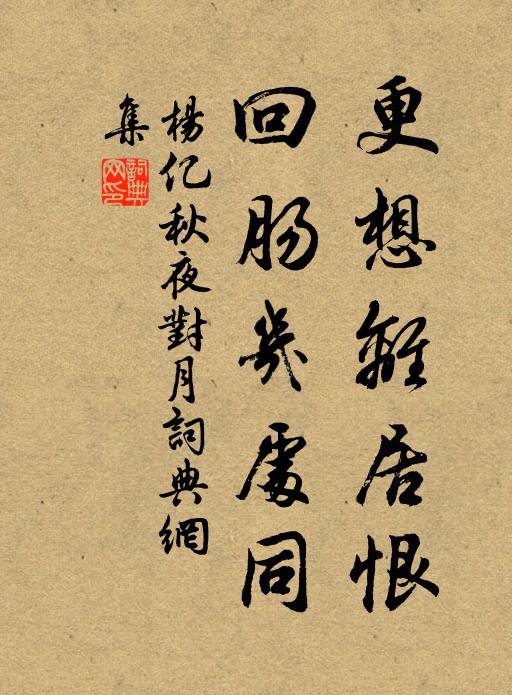 更想離居恨
回肠幾處同
楊亿秋夜對月詞典網
集
詞典網印